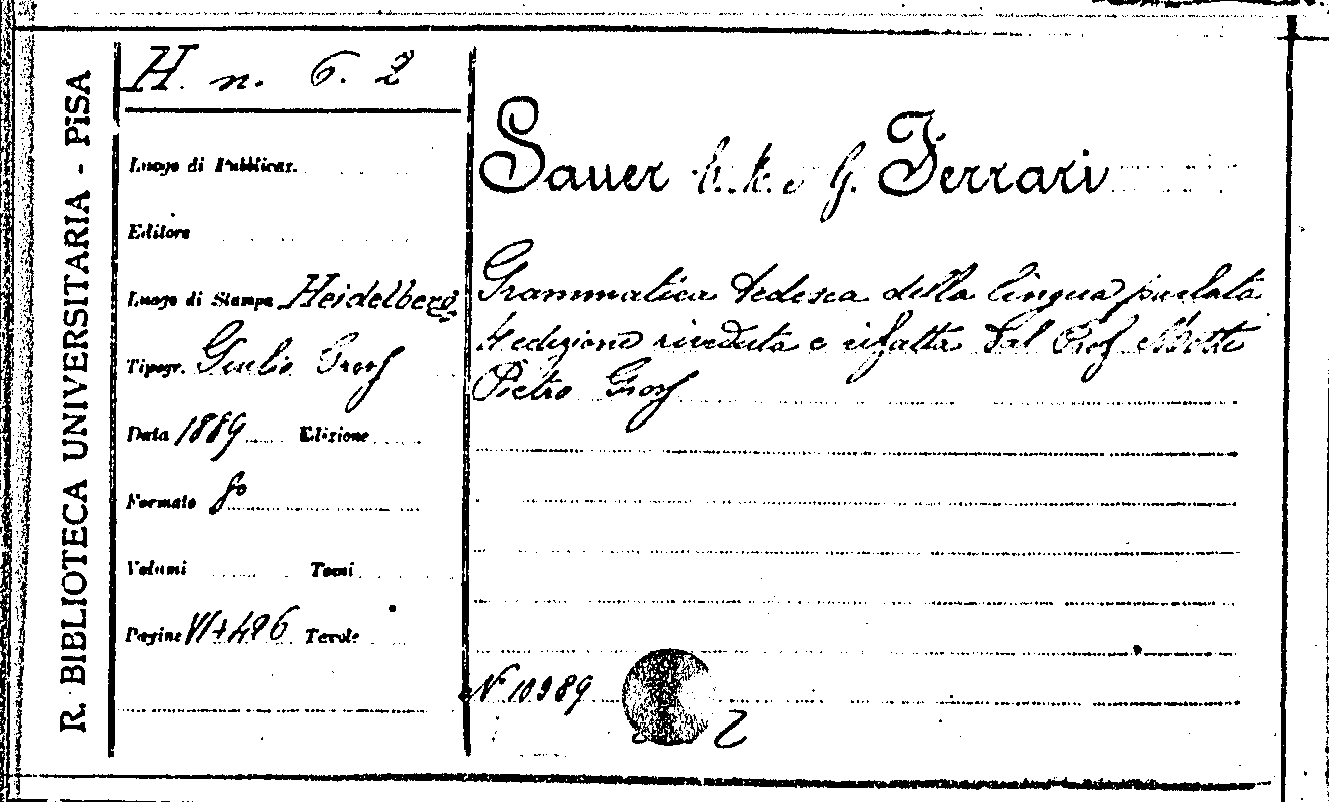 R. BIBLIOTECA UNIVERSITARIA - PISA
H. n. 6. 2
Luogo di Pubblicaz.
Editore
Luogo di Stampa Heidelberg
Tipogr. Giulio Groos
Data 1889 Edizione
Formato 8°
Volumi Tomi
Pagine VI+426 Tavole
Sauer C. M. e G. Ferrari
Grammatica tedesca della lingua parlata
4 edizione riveduta e rifatta dal Prof Cattaneo
Pietro Groos
N 10989
2